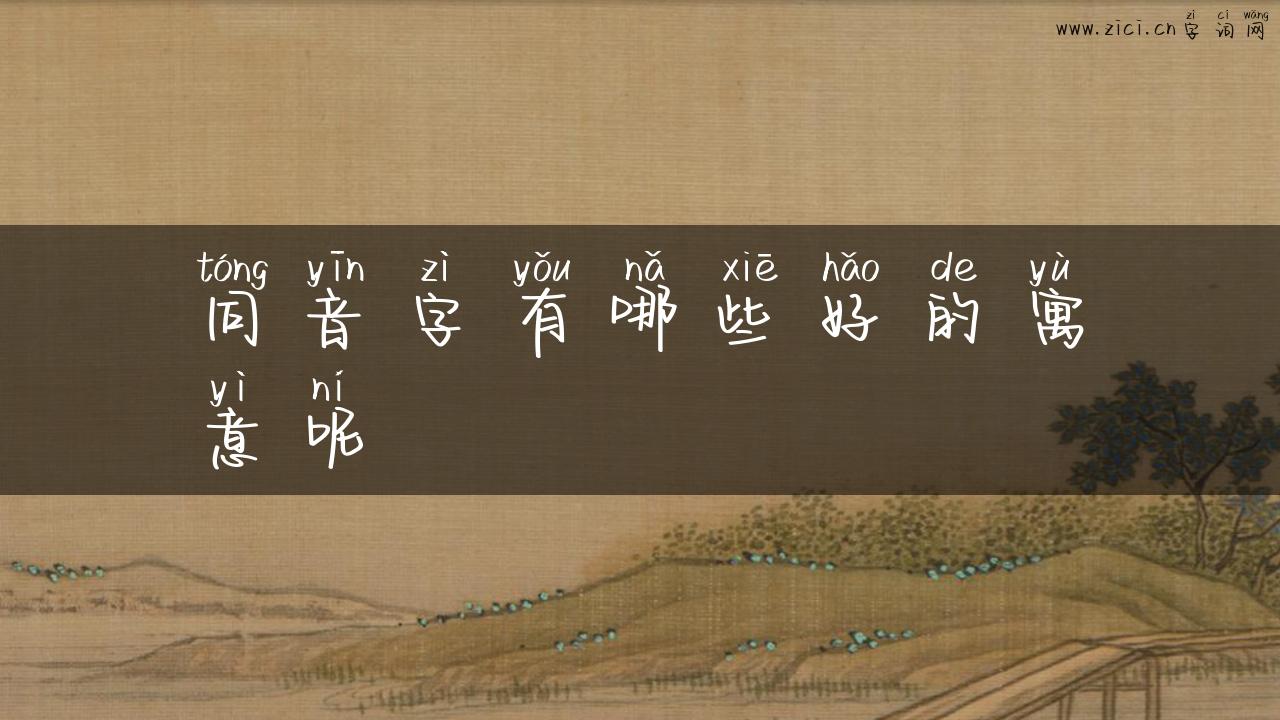 zì cí wǎng
www.zici.cn字词网
tóng yīn zì yǒu nǎ xiē hǎo de yù
同音字有哪些好的寓
yì ní
意呢